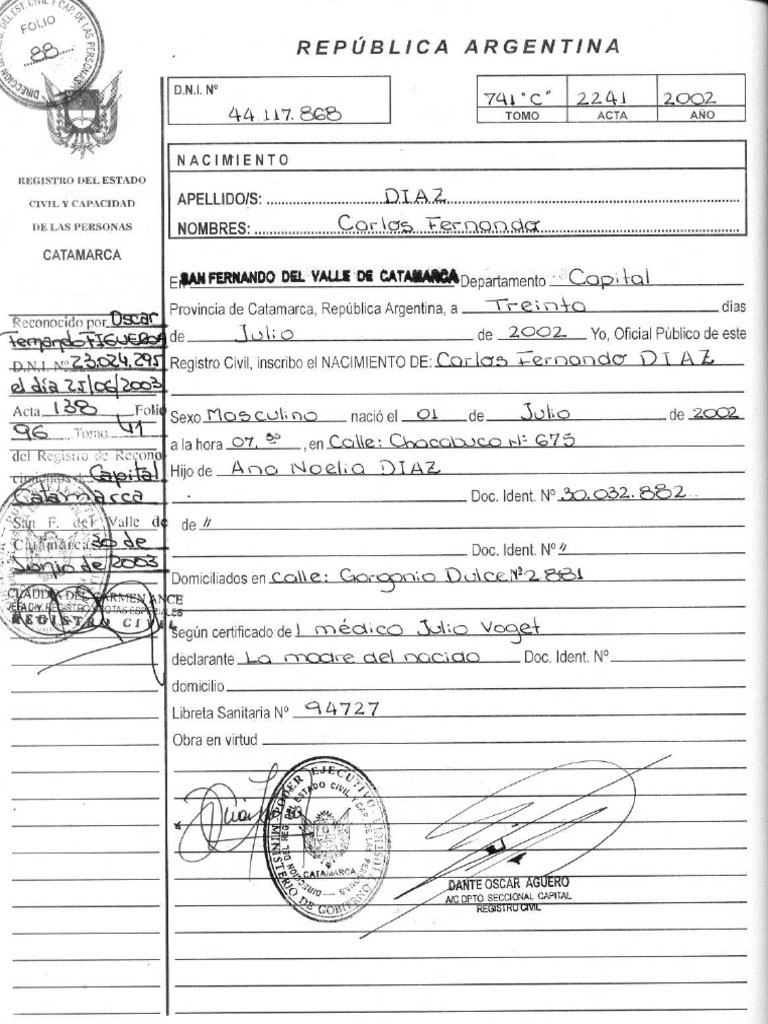 DIRECCION DEL REG. DEL EST. CIVIL Y CAP. DE LAS PERSONAS
FOLIO
88
REPÚBLICA ARGENTINA
D.N.I. Nº
44.117.868
741 "C" 2241 2002
TOMO ACTA AÑO
REGISTRO DEL ESTADO
CIVIL Y CAPACIDAD
DE LAS PERSONAS
CATAMARCA
NACIMIENTO
APELLIDO/S: DIAZ
NOMBRES: Carlos Fernando
En SAN FERNANDO DEL VALLE DE CATAMARCA Departamento Capital
Provincia de Catamarca, República Argentina, a Treinta días
de Julio de 2002 Yo, Oficial Público de este
Registro Civil, inscribo el NACIMIENTO DE: Carlos Fernando DIAZ
Sexo Masculino nació el 01 de Julio de 2002
a la hora 07,30, en Calle: Chacabuco Nº 675
Hijo de Ana Noelia DIAZ
Doc. Ident. Nº 30.032.882
de //
Doc. Ident. Nº //
Domiciliados en calle: Gorgonio Dulce Nº 2.881
según certificado del médico Julio Voget
declarante La madre del nacido Doc. Ident. Nº
domicilio
Libreta Sanitaria Nº 94727
Obra en virtud
Reconocido por Oscar
Fernando FIGUEROA
D.N.I. Nº 23.024.295
el día 25/06/2003
Acta 138 Folio
96 Tomo 41
del Registro de Recono
cimientos de Capital
Catamarca
San F. del Valle de
Catamarca 30 de
Junio de 2003
CLAUDIA DEL CARMEN ANCE
JEFA DIV. REGISTRO NOTAS ESPECIALES
REGISTRO CIVIL
MINISTERIO DE GOBIERNO
PODER EJECUTIVO
DIRECCION DEL REG. DEL ESTADO CIVIL Y CAP. DE LAS PERSONAS
CATAMARCA
DANTE OSCAR AGÜERO
A/C DPTO. SECCIONAL CAPITAL
REGISTRO CIVIL